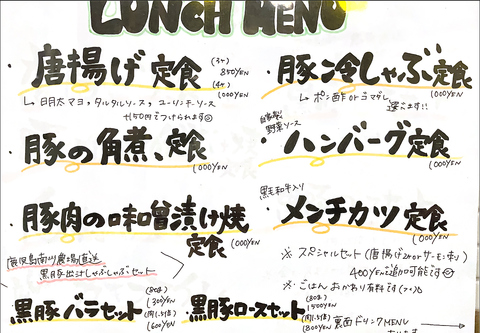 LUNCH MENU
・唐揚げ定食 (3ケ) 850YEN
(4ケ) 1000YEN
↳ 明太マヨ、タルタルソース、ユーリンチーソース
+150円でつけられます
・豚の角煮、定食 1000YEN
・豚肉の味噌漬け焼
定食 1000YEN
鹿児島南州農場直送
黒豚出汁しゃぶしゃぶセット
・黒豚バラセット (80g) 1300YEN
(肉1.5倍) 1600YEN
・豚冷しゃぶ定食 1000YEN
↳ ポン酢orゴマダレ
選べます!!
自家製
野菜ソース
・ハンバーグ定食 1000YEN
黒毛和牛入り
・メンチカツ定食 1000YEN
※ スペシャルセット (唐揚げ2ケorサーモン刺し)
400YENで追加可能です
※ ごはんおかわり有料です
・黒豚ロースセット (80g) 1500YEN
(肉1.5倍) 1800YEN
裏面ドリンクMENU